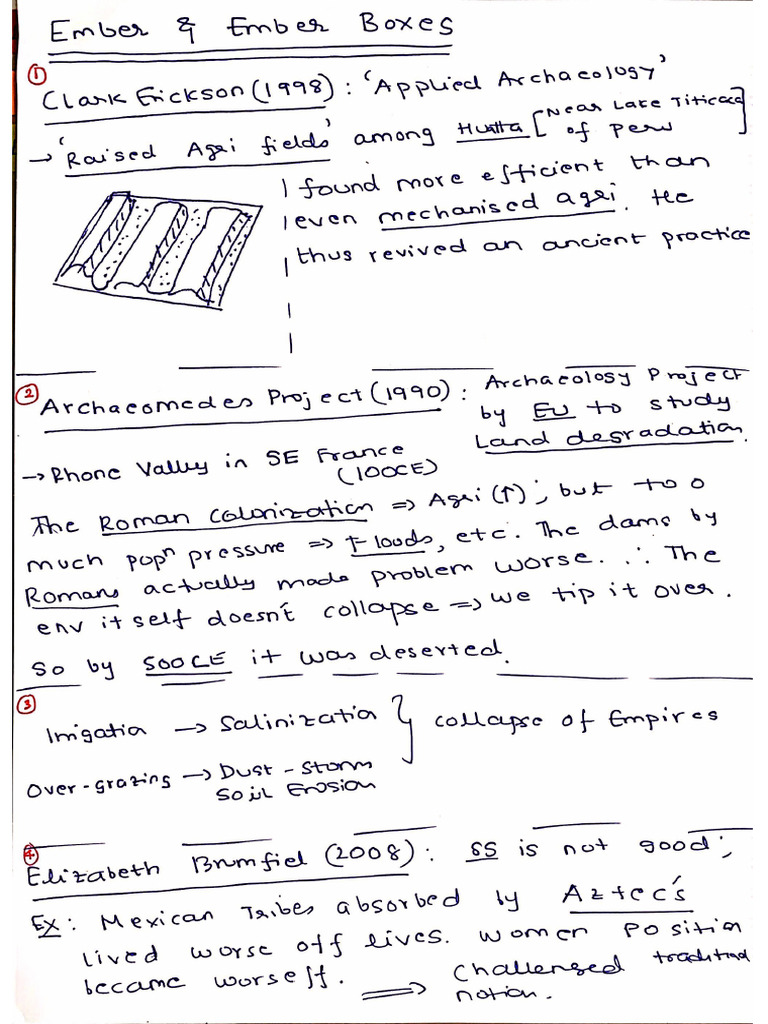 Ember & Ember Boxes
① Clark Erickson (1998) : 'Applied Archaeology'
→ 'Raised Agri fields' among Huatta [Near Lake Titicaca of Peru]
found more efficient than
even mechanised agri. He
thus revived an ancient practice
② Archaeomedes Project (1990) : Archaeology Project
by EU to study
Land degradation.
→ Rhone Valley in SE France
(100CE)
The Roman Colonization ⇒ Agri (↑) ; but too
much popⁿ pressure ⇒ Floods, etc. The dams by
Romans actually made problem worse. ∴ The
env itself doesn't collapse ⇒ we tip it over.
So by 500CE it was deserted.
③
Irrigation → Salinization } Collapse of Empires
Over-grazing → Dust-storm
Soil Erosion
④
Elizabeth Brumfiel (2008) : SS is not good ;
Ex : Mexican Tribes absorbed by Aztec's
lived worse off lives. Women Position
became worself. ⇒ Challenged traditional
notion.